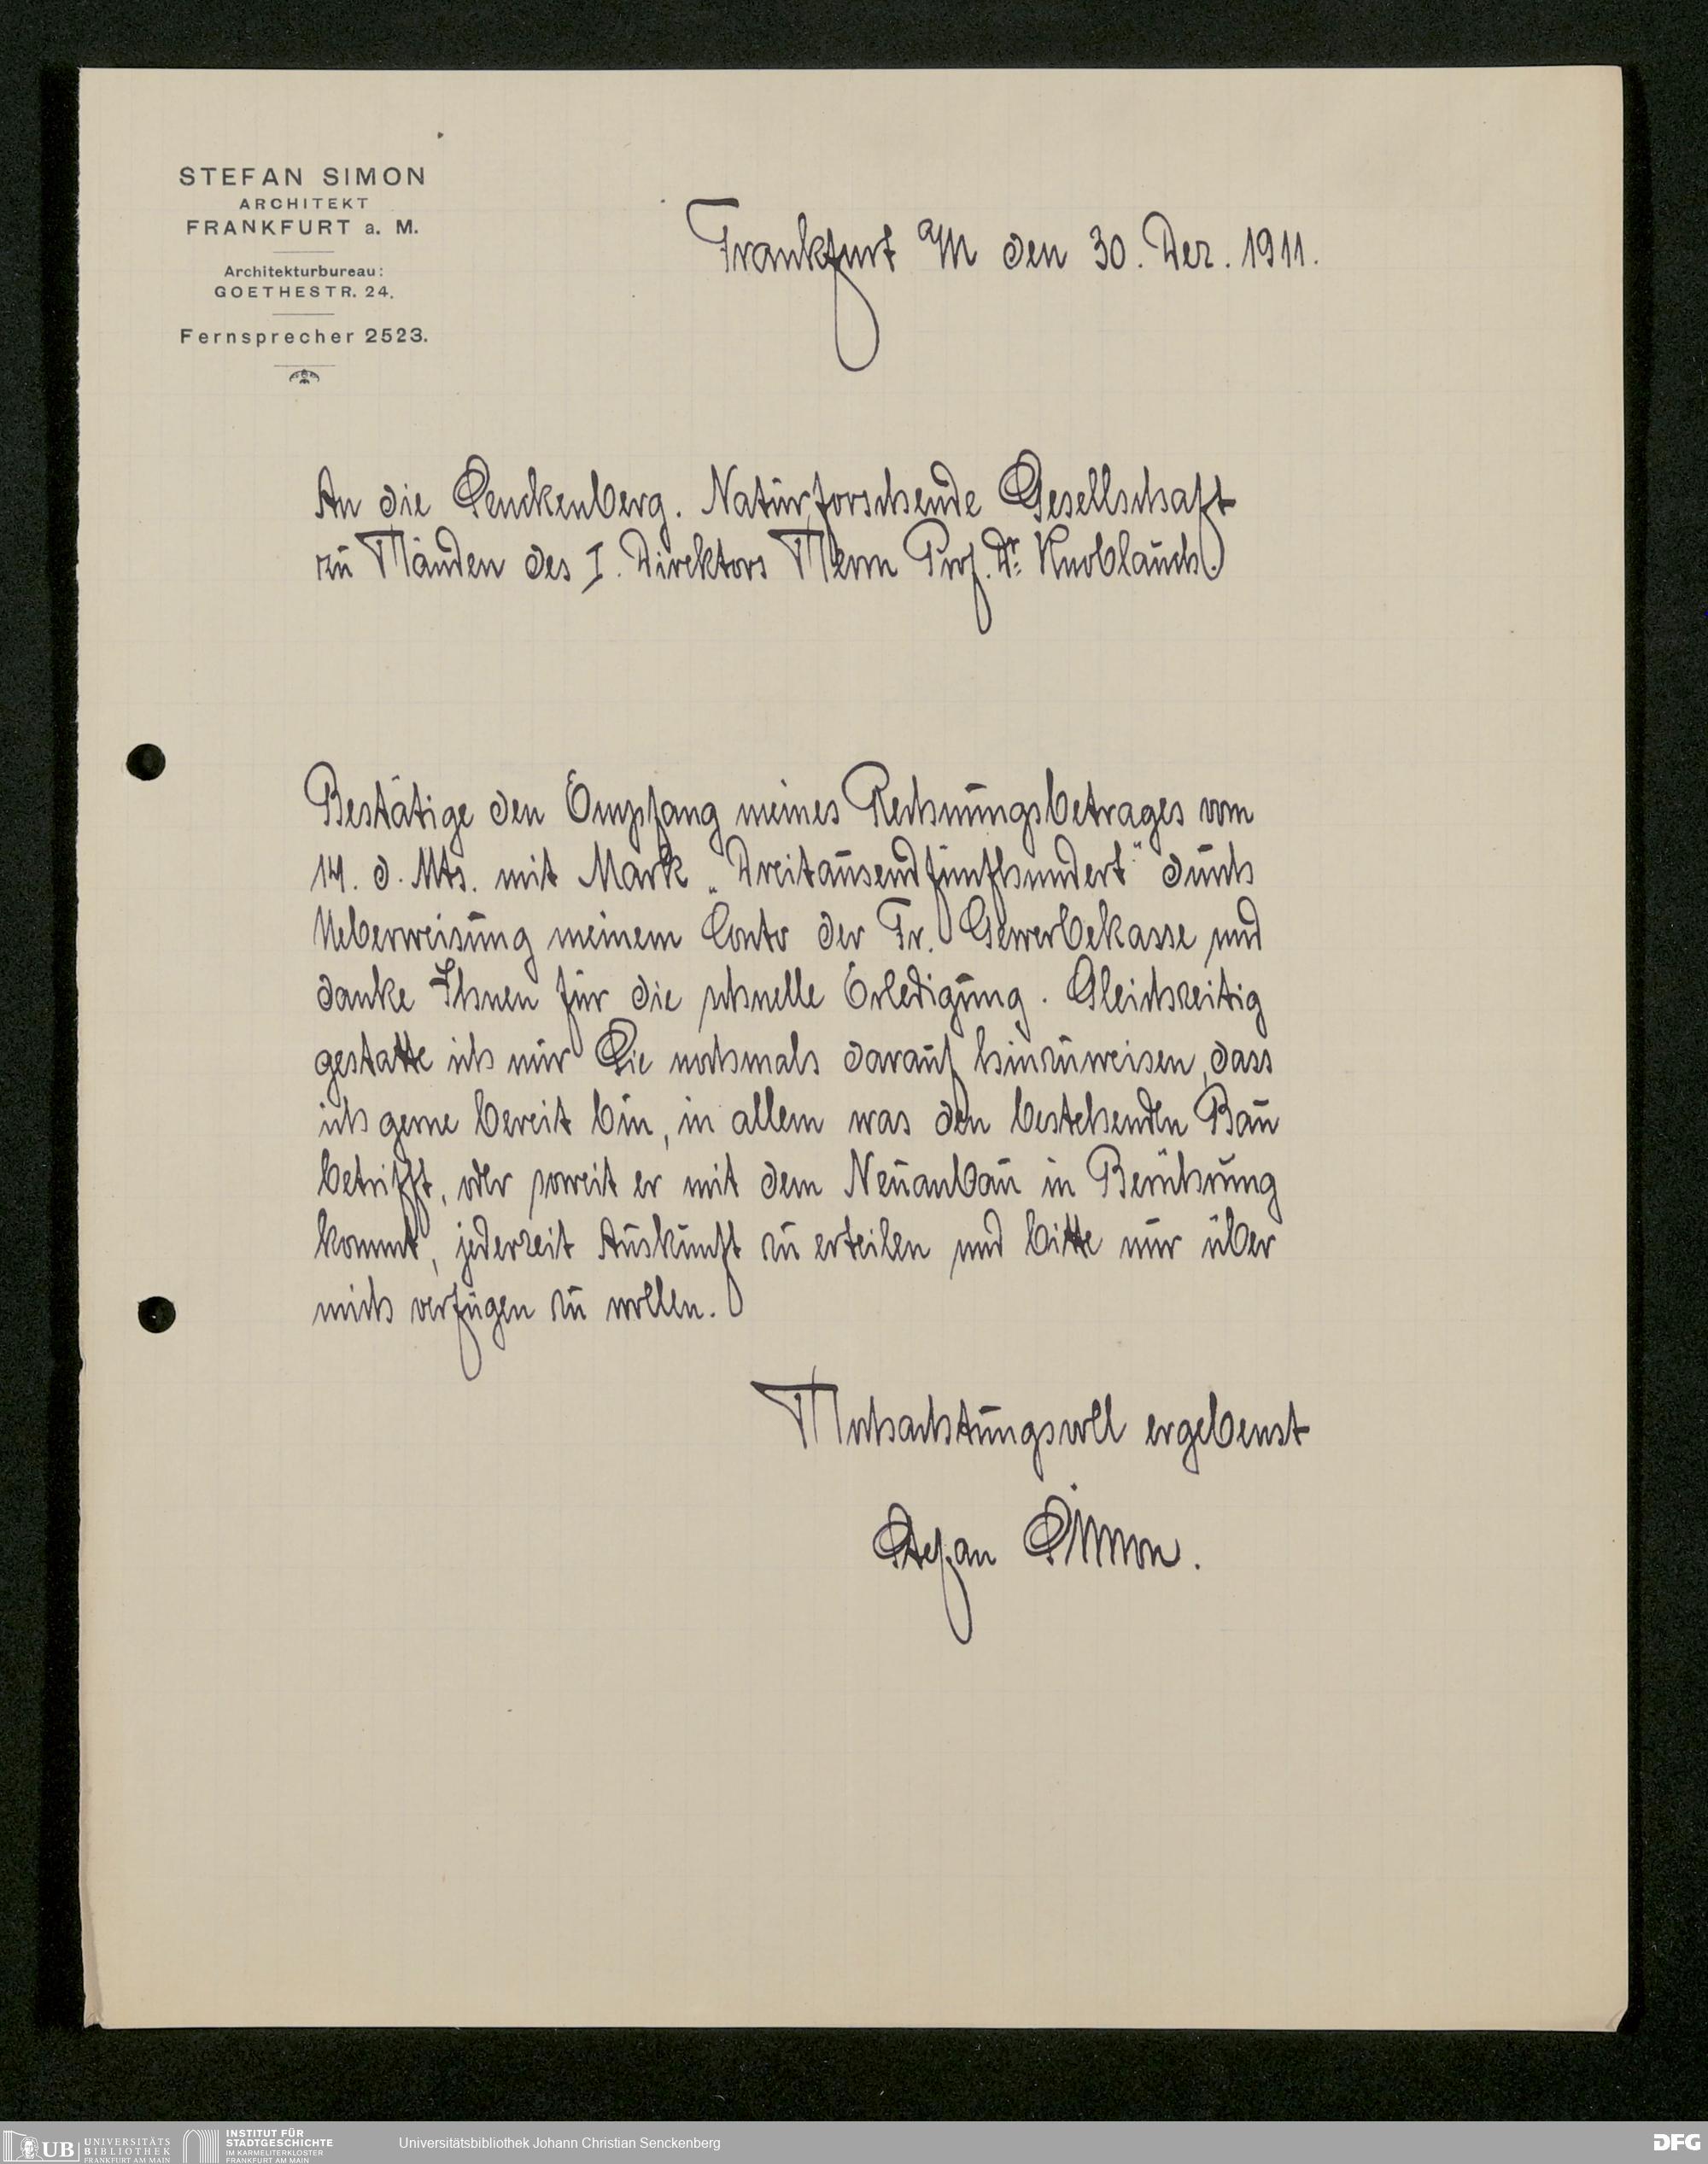 STEFAN SIMON
ARCHITEKT
FRANKFURT a. M.
Architekturbureau:
GOETHESTR. 24.
Fernsprecher 2523.
Frankfurt a/M den 30. Dez. 1911.
An die Senckenberg. Naturforschende Gesellschaft
zu Händen des I. Direktors Herrn Prof. Dr. Knoblauch.
Bestätige den Empfang meines Rechnungsbetrages vom
14. d. Mts. mit Mark „Dreitausendfünfhundert" durch
Ueberweisung meinem Conto der Fr. Gewerbekasse und
danke Ihnen für die schnelle Erledigung. Gleichzeitig
gestatte ich mir Sie nochmals darauf hinzuweisen, dass
ich gerne bereit bin, in allem was den bestehenden Bau
betrifft, oder soweit er mit dem Neuanbau in Berührung
kommt, jederzeit Auskunft zu erteilen und bitte nur über
mich verfügen zu wollen.
Hochachtungsvoll ergebenst
Stefan Simon.
UB UNIVERSITÄTS
BIBLIOTHEK
FRANKFURT AM MAIN
INSTITUT FÜR
STADTGESCHICHTE
IM KARMELITERKLOSTER
FRANKFURT AM MAIN
Universitätsbibliothek Johann Christian Senckenberg
DFG